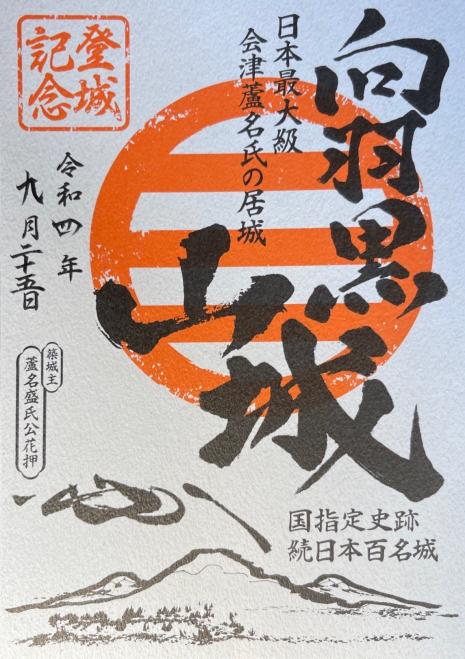 向羽黒
山城
日本最大級
会津蘆名氏の居城
登城
記念
令和四年
九月二十五日
築城主
蘆名盛氏公花押
国指定史跡
続日本百名城